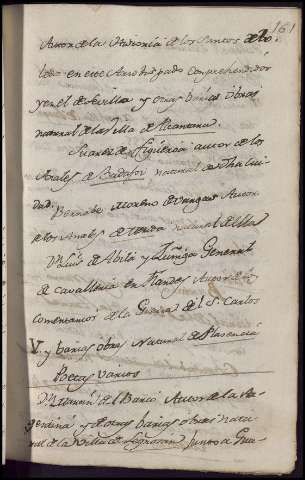 161
Autor de la Historia de los Santos de To-
ledo en este Arzobispado comprehendidos
y en el de Sevilla y otras varias obras
natural de la Villa de Alcantara.
Suarez de Figueroa autor de los
Anales de Badajoz natural de dha ciu-
dad.
Bernabe Moreno de Vargas Autor
de los Anales de Merida natural de ella
Dn Luis de Abila y Zuñiga General
de cavalleria en Flandes Autor de los
comentarios de la Guerra del S. Carlos
V. y varias obras Natural de Plasencia
Poetas varios
Dn Martin del Barco Autor de la Ar-
gentina y de otras varias obras natu-
ral de la Villa de Logrosan junto a Gua-